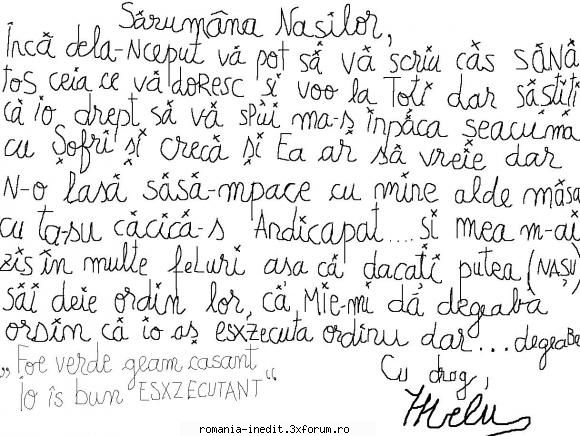 Sărumâna Nasilor,
Încă dela-Nceput vă pot să vă scriu căs SĂNĂ
tos ceia ce vă dORESC și voo la Toti dar săstiti
că io drept să vă spui ma-s înpăca seacuma
cu Șofri și crecă și Ea ar să vreie dar
N-o lasă săsă-mpace cu mine alde măsa
cu ta-su căcică-s Andicapat.... și mea m-ai
zis în multe feluri asa că dacati putea (NAȘU)
săi deie ordin lor, că, MIe-mi dă degeabă
ordin că io aș esxzecuta ordinu dar... degeabe
„Foe verde geam casant
Io îs bun ESXZECUTANT“
Cu drag,
romania-inedit.3xforum.ro